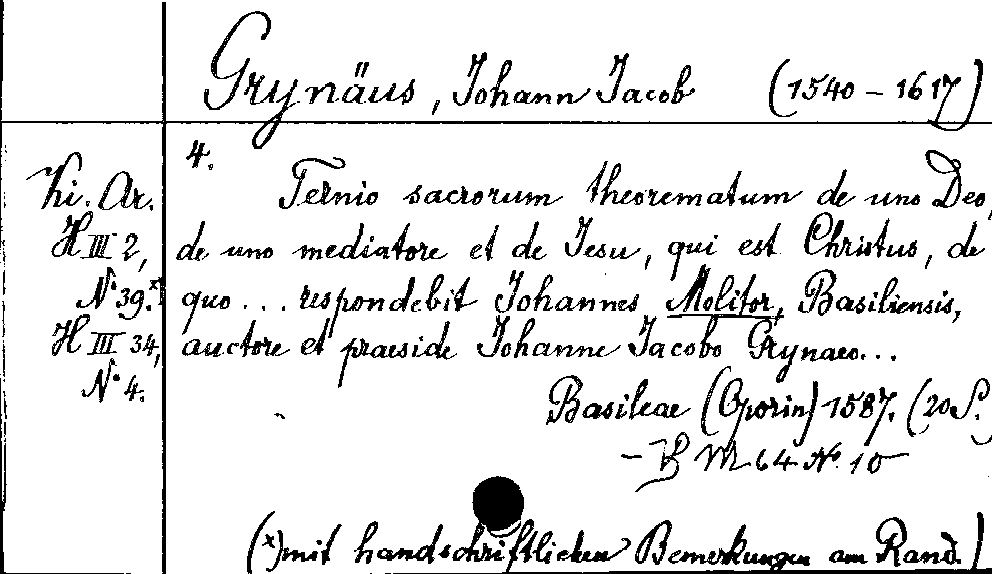 Grynäus, Johann Jacob (1540 – 1617)
4.
Ki. Ar. Ternio sacrorum theorematum de uno Deo,
H III 2, de uno mediatore et de Jesu, qui est Christus, de
N° 39.x) quo ... respondebit Johannes Molitor, Basiliensis,
H III 34, auctore et praeside Johanne Jacobo Grynaeo...
N° 4.
Basileae (Oporin) 1587. (20 S.)
– B M 64 N° 10
(x) mit handschriftlichen Bemerkungen am Rand.)